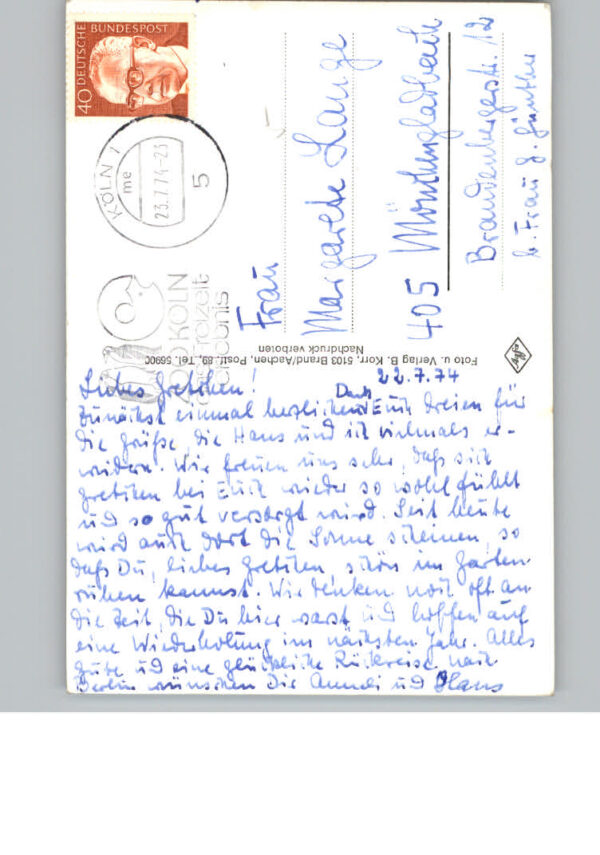 40 DEUTSCHE BUNDESPOST
KÖLN 1
me
23.7.74-23
5
ZOO KÖLN
Frau
Margarete Lange
405 Mönchengladbach
Brandenbergerstr. 12
b. Frau G. Günther
Foto u. Verlag B. Korr, 5103 Brand/Aachen, Postf. 89, Tel. 56900
Nachdruck verboten
Agfa
22.7.74
Liebes Gretchen!
Zunächst einmal herzlichen Dank Euch dreien für
die Grüße, die Hans und ich vielmals er-
widern. Wir freuen uns sehr, daß sich
Gretchen bei Euch wieder so wohl fühlt
und so gut versorgt wird. Seit heute
wird auch dort die Sonne scheinen, so
daß Du, liebes Gretchen, schön im Garten
ruhen kannst. Wir denken noch oft an
die Zeit, die Du hier warst und hoffen auf
eine Wiederholung im nächsten Jahr. Alles
Gute und eine glückliche Rückreise nach
Berlin wünschen Dir Annedi und Hans